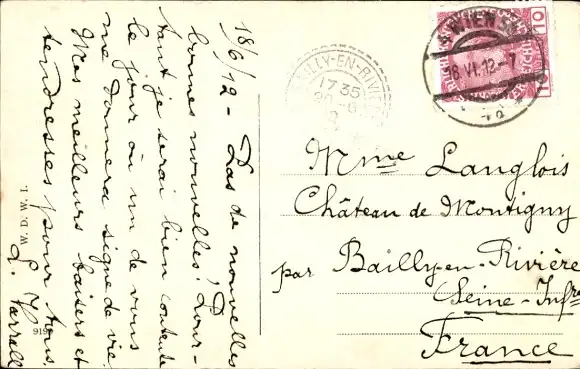 18/6/12 - Pas de nouvelles
bonnes nouvelles! Pour-
tant je serai bien contente
le jour où un de vous
me donnera signe de vie.
Mes meilleurs baisers et
tendresses pour tous.
L.
W. D. W. L.
BAILLY-EN-RIVIÈRE
17 35
20-6
WIEN
18. VI. 12-7
10
Mme Langlois
Château de Montigny
par Bailly-en-Rivière
Seine-Infre
France